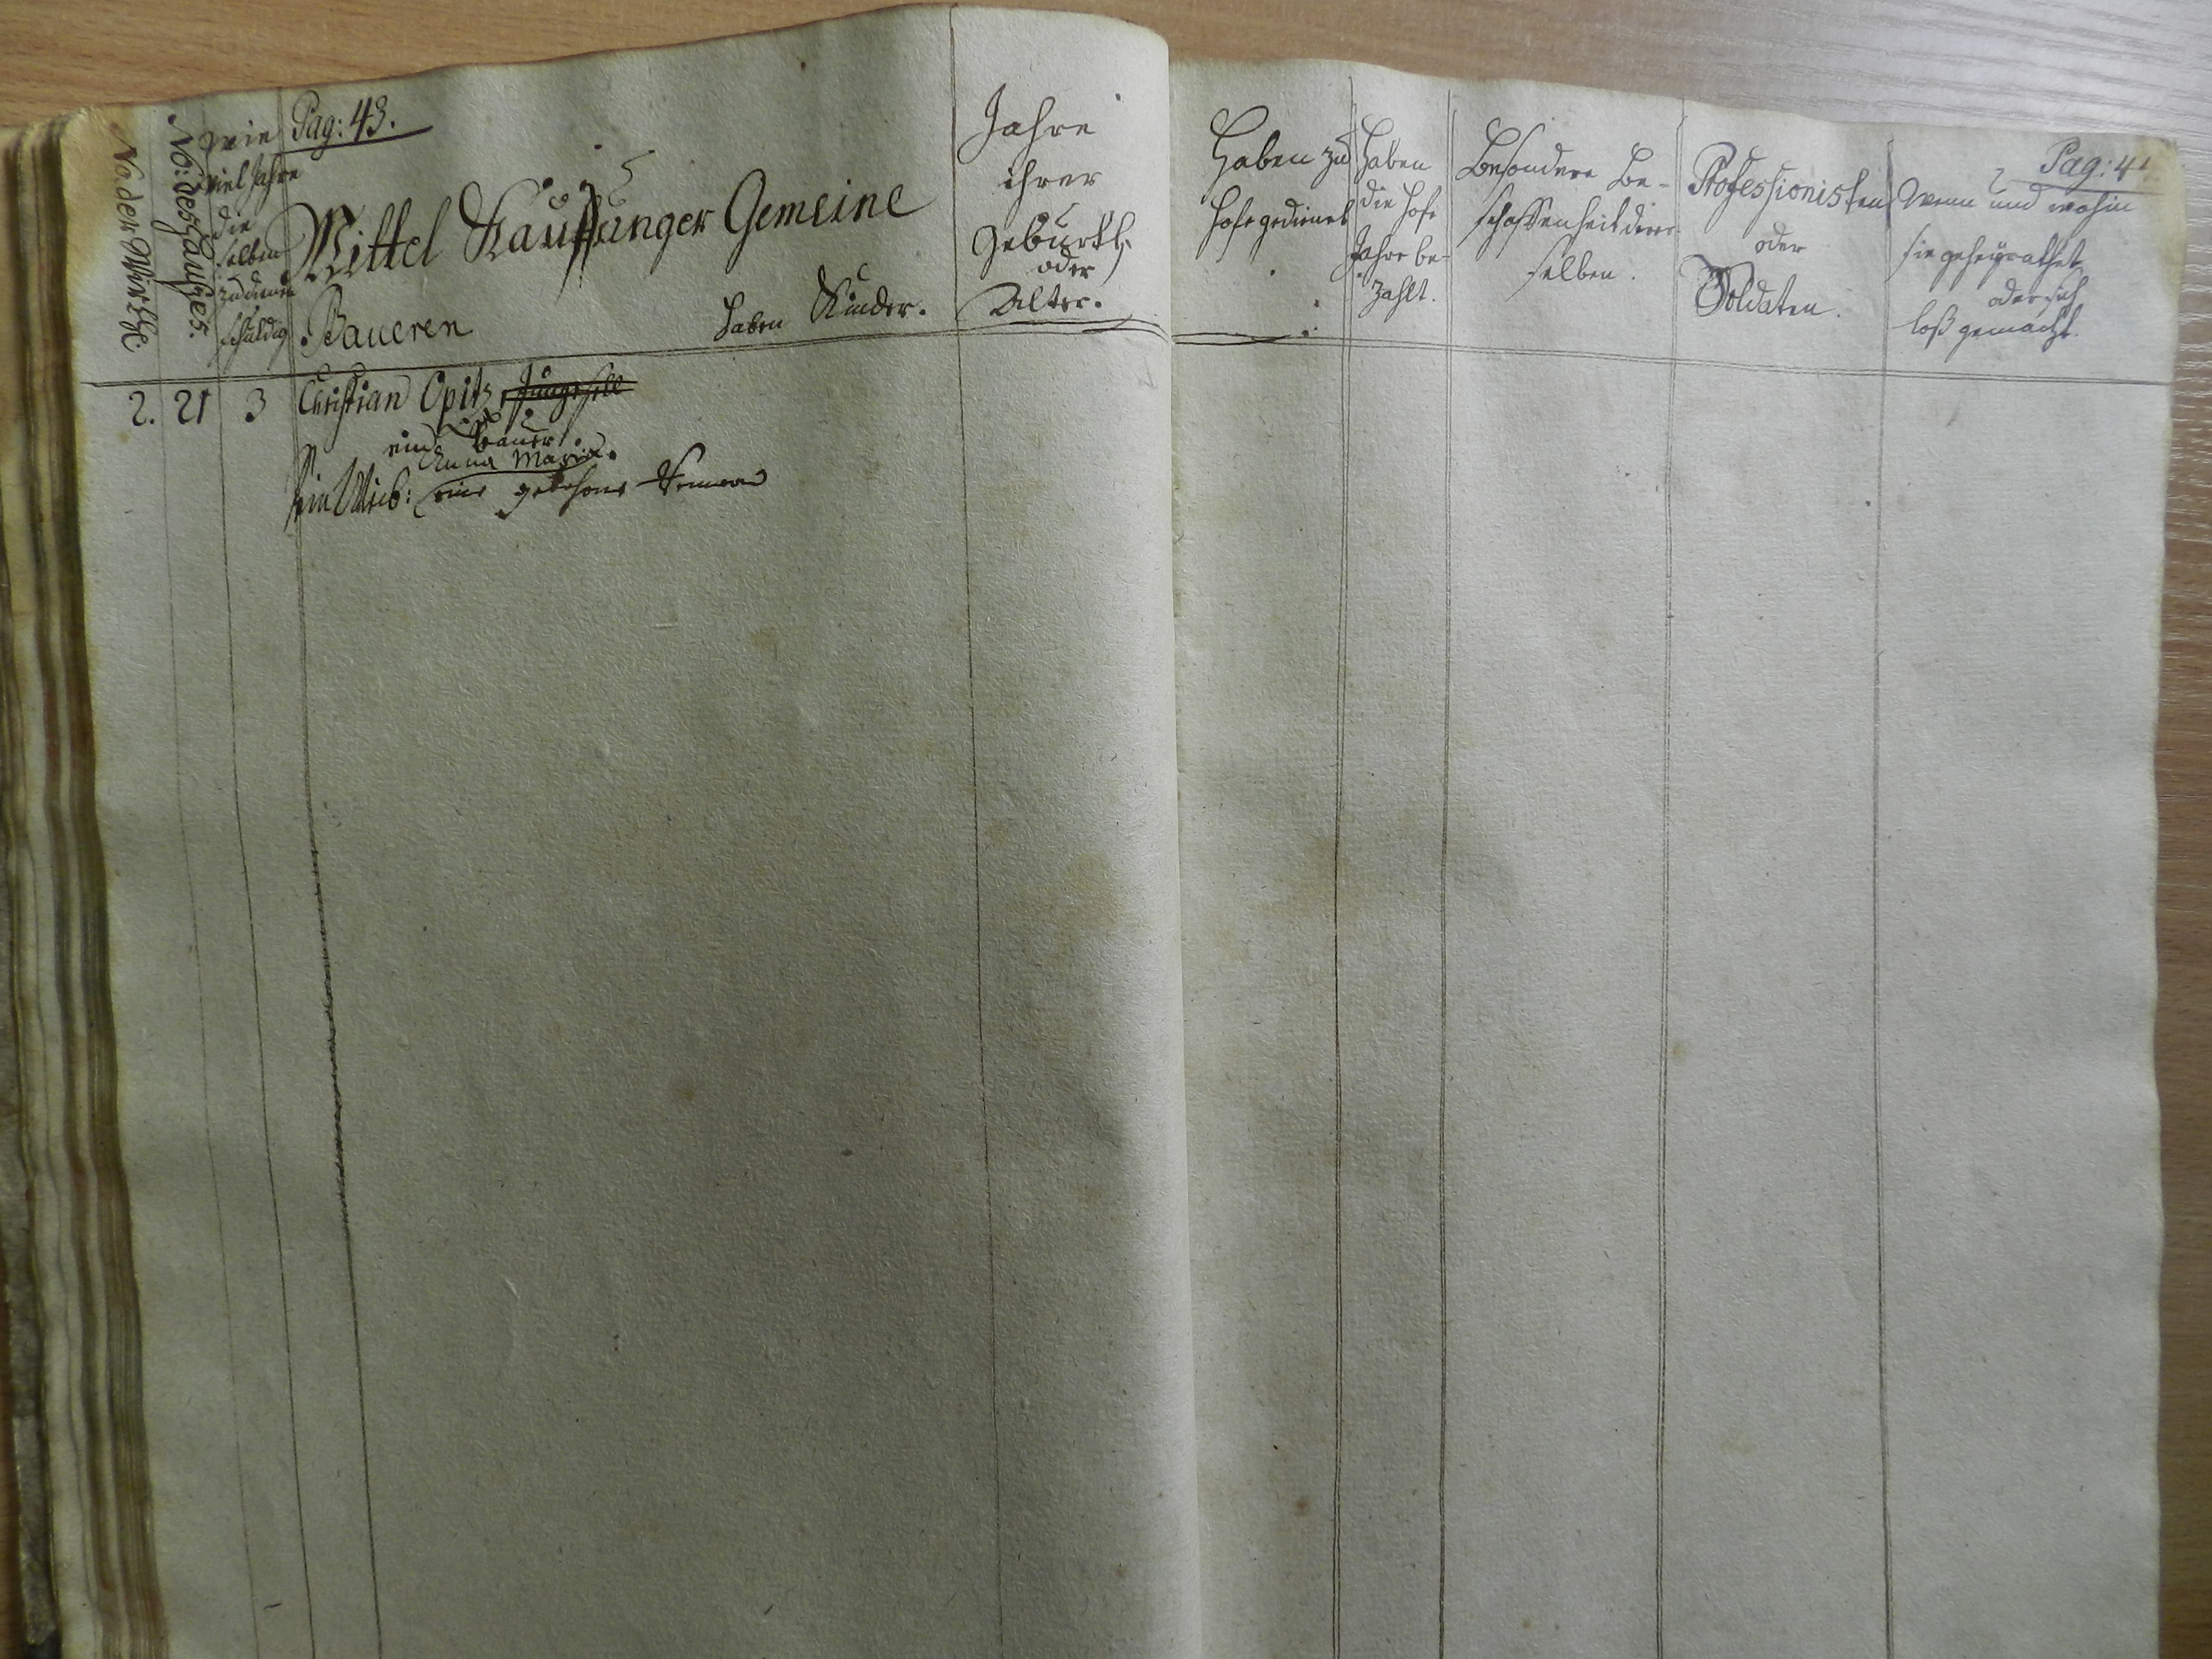 Pag: 43.
No: der Wirthe.
No: des Hauses.
wie
viel Jahre
die
selben
zu dienen
schuldig
Mittel Kauffunger Gemeine
Baueren
haben Kinder.
Jahre
ihrer
Geburth
oder
Alter.
Haben zu
Hofe gedienet
Haben
die Hofe
Jahre be-
zahlt.
Besondere Be-
schaffenheit derer-
selben.
Professionisten
oder
Soldaten.
Pag: 4
Wenn und wohin
sie geheyrathet
oder sich
loß gemacht.
2. 21 3 Christian Opitz, Junggesell
ein Bauer
Anna Maria.
sein Weib: eine gebohrne